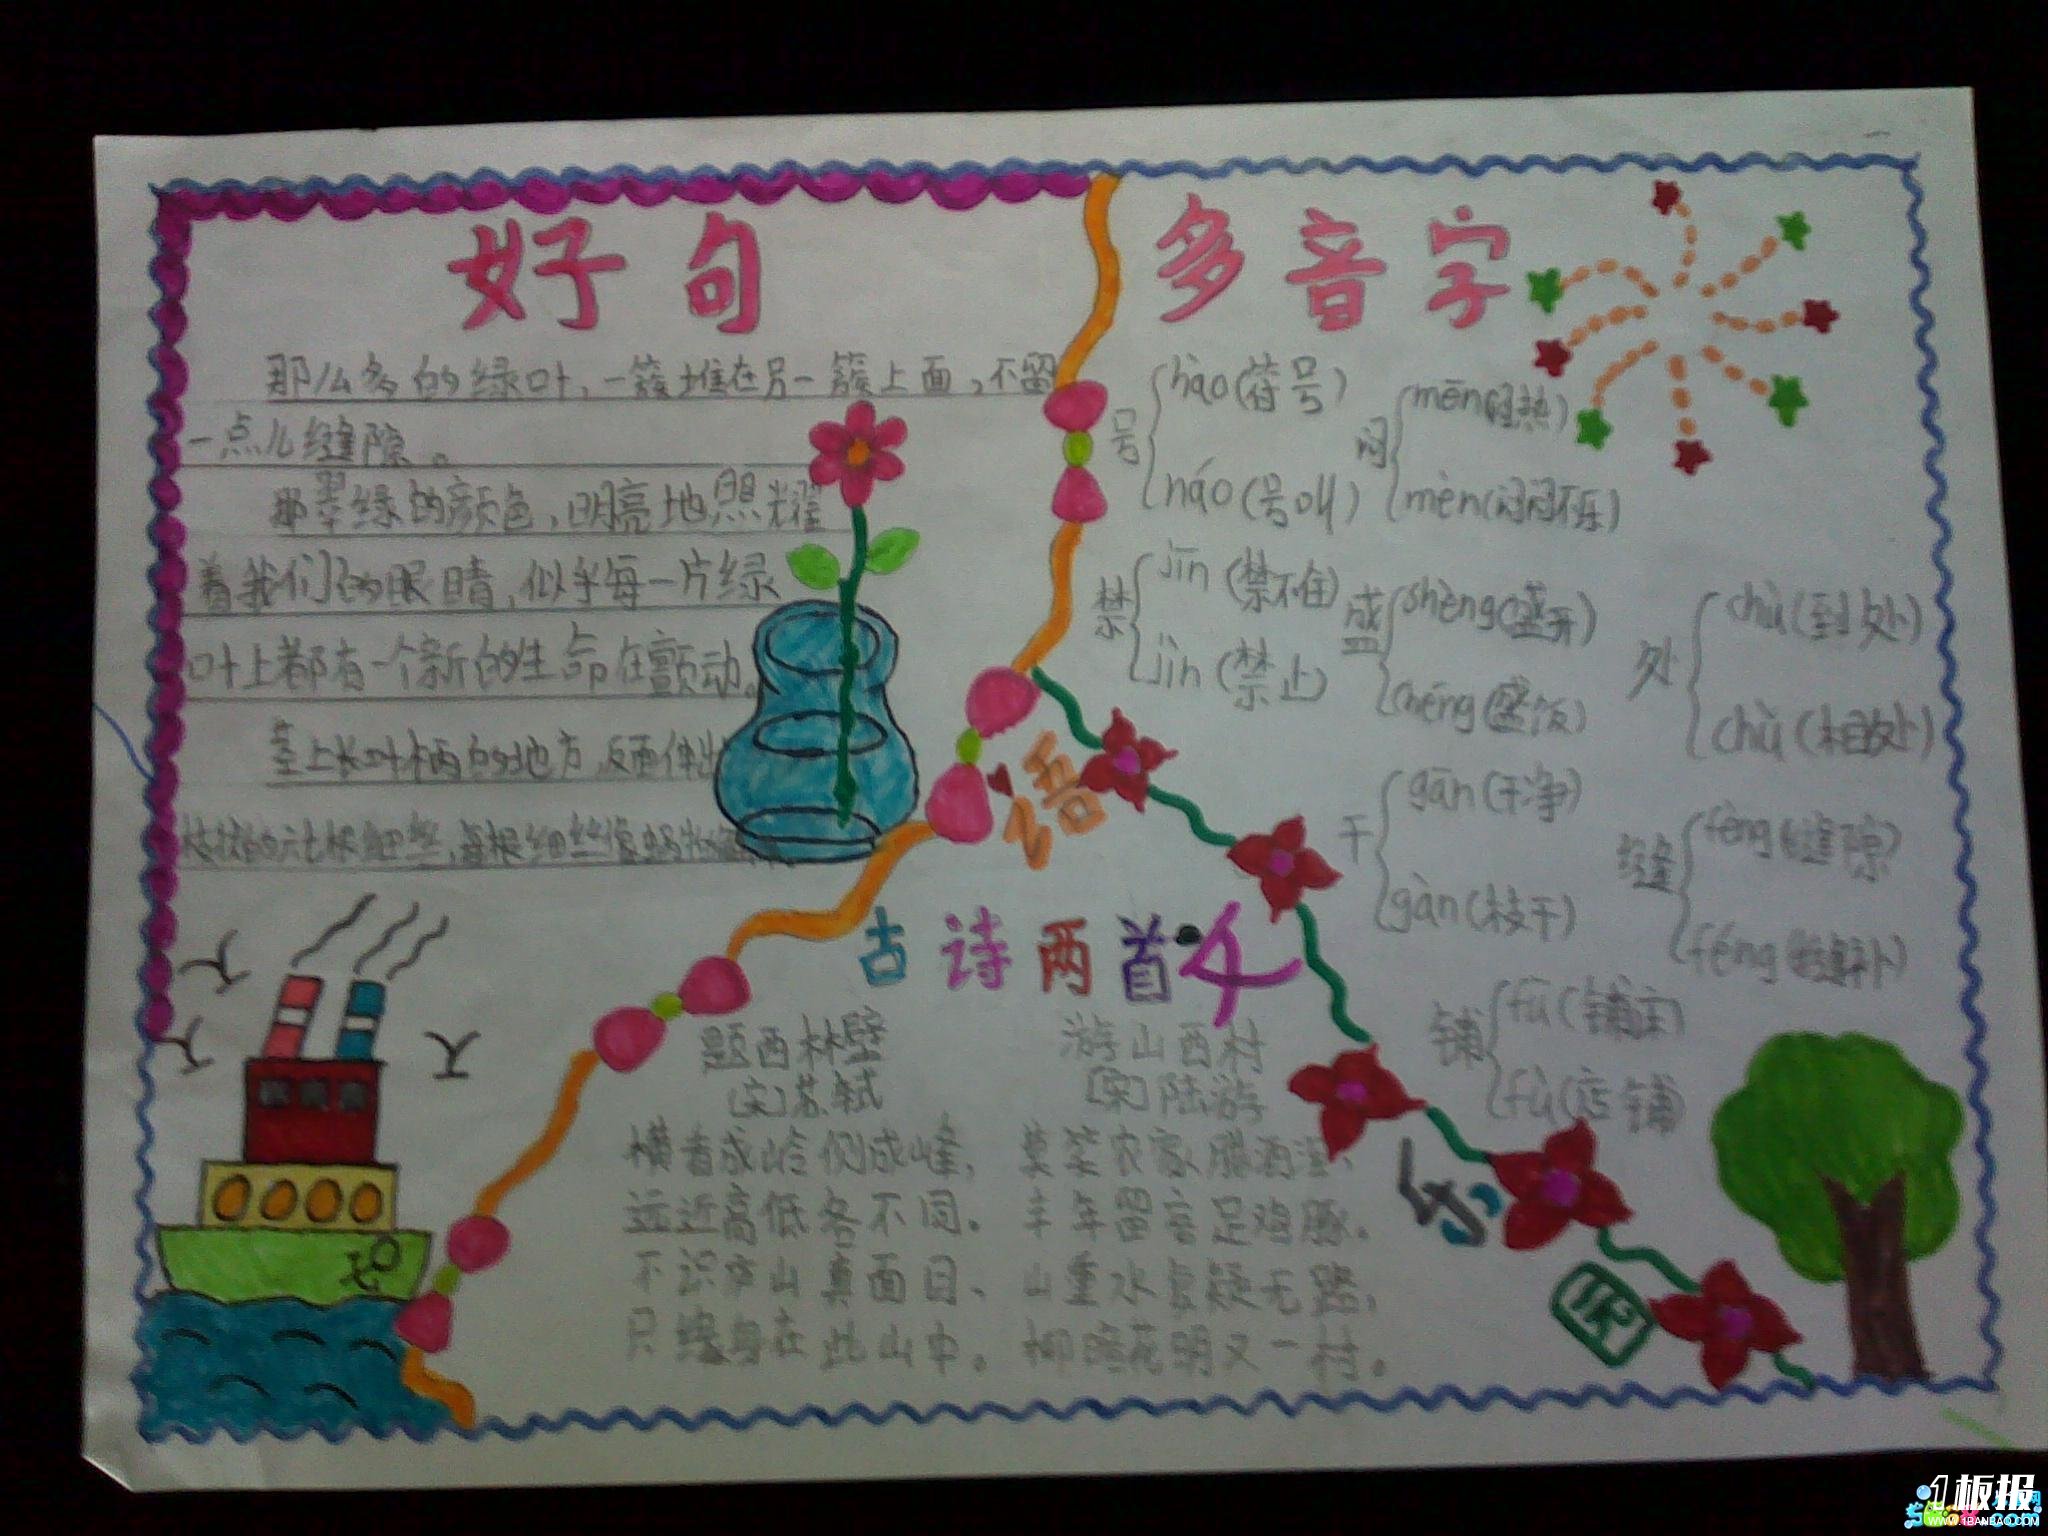 好句
那么多的绿叶，一簇堆在另一簇上面，不留
一点儿缝隙。
那翠绿的颜色，明亮地照耀
着我们的眼睛，似乎每一片绿
叶上都有一个新的生命在颤动。
茎上长叶柄的地方，反面伸出
枝状的六七根细丝，每根细丝像蜗牛
多音字
号 hào(符号)
háo(号叫)
闷 mēn(闷热)
mèn(闷闷不乐)
禁 jīn(禁不住)
jìn(禁止)
盛 shèng(盛开)
chéng(盛饭)
处 chù(到处)
chǔ(相处)
干 gān(干净)
gàn(枝干)
缝 fèng(缝隙)
féng(缝补)
铺 fū(铺住)
fù(店铺)
语
古诗两首
题西林壁
[宋]苏轼
横看成岭侧成峰，
远近高低各不同。
不识庐山真面目，
只缘身在此山中。
游山西村
[宋]陆游
莫笑农家腊酒浑，
丰年留客足鸡豚。
山重水复疑无路，
柳暗花明又一村。
报
1板报
WWW.1BANBAO.COM